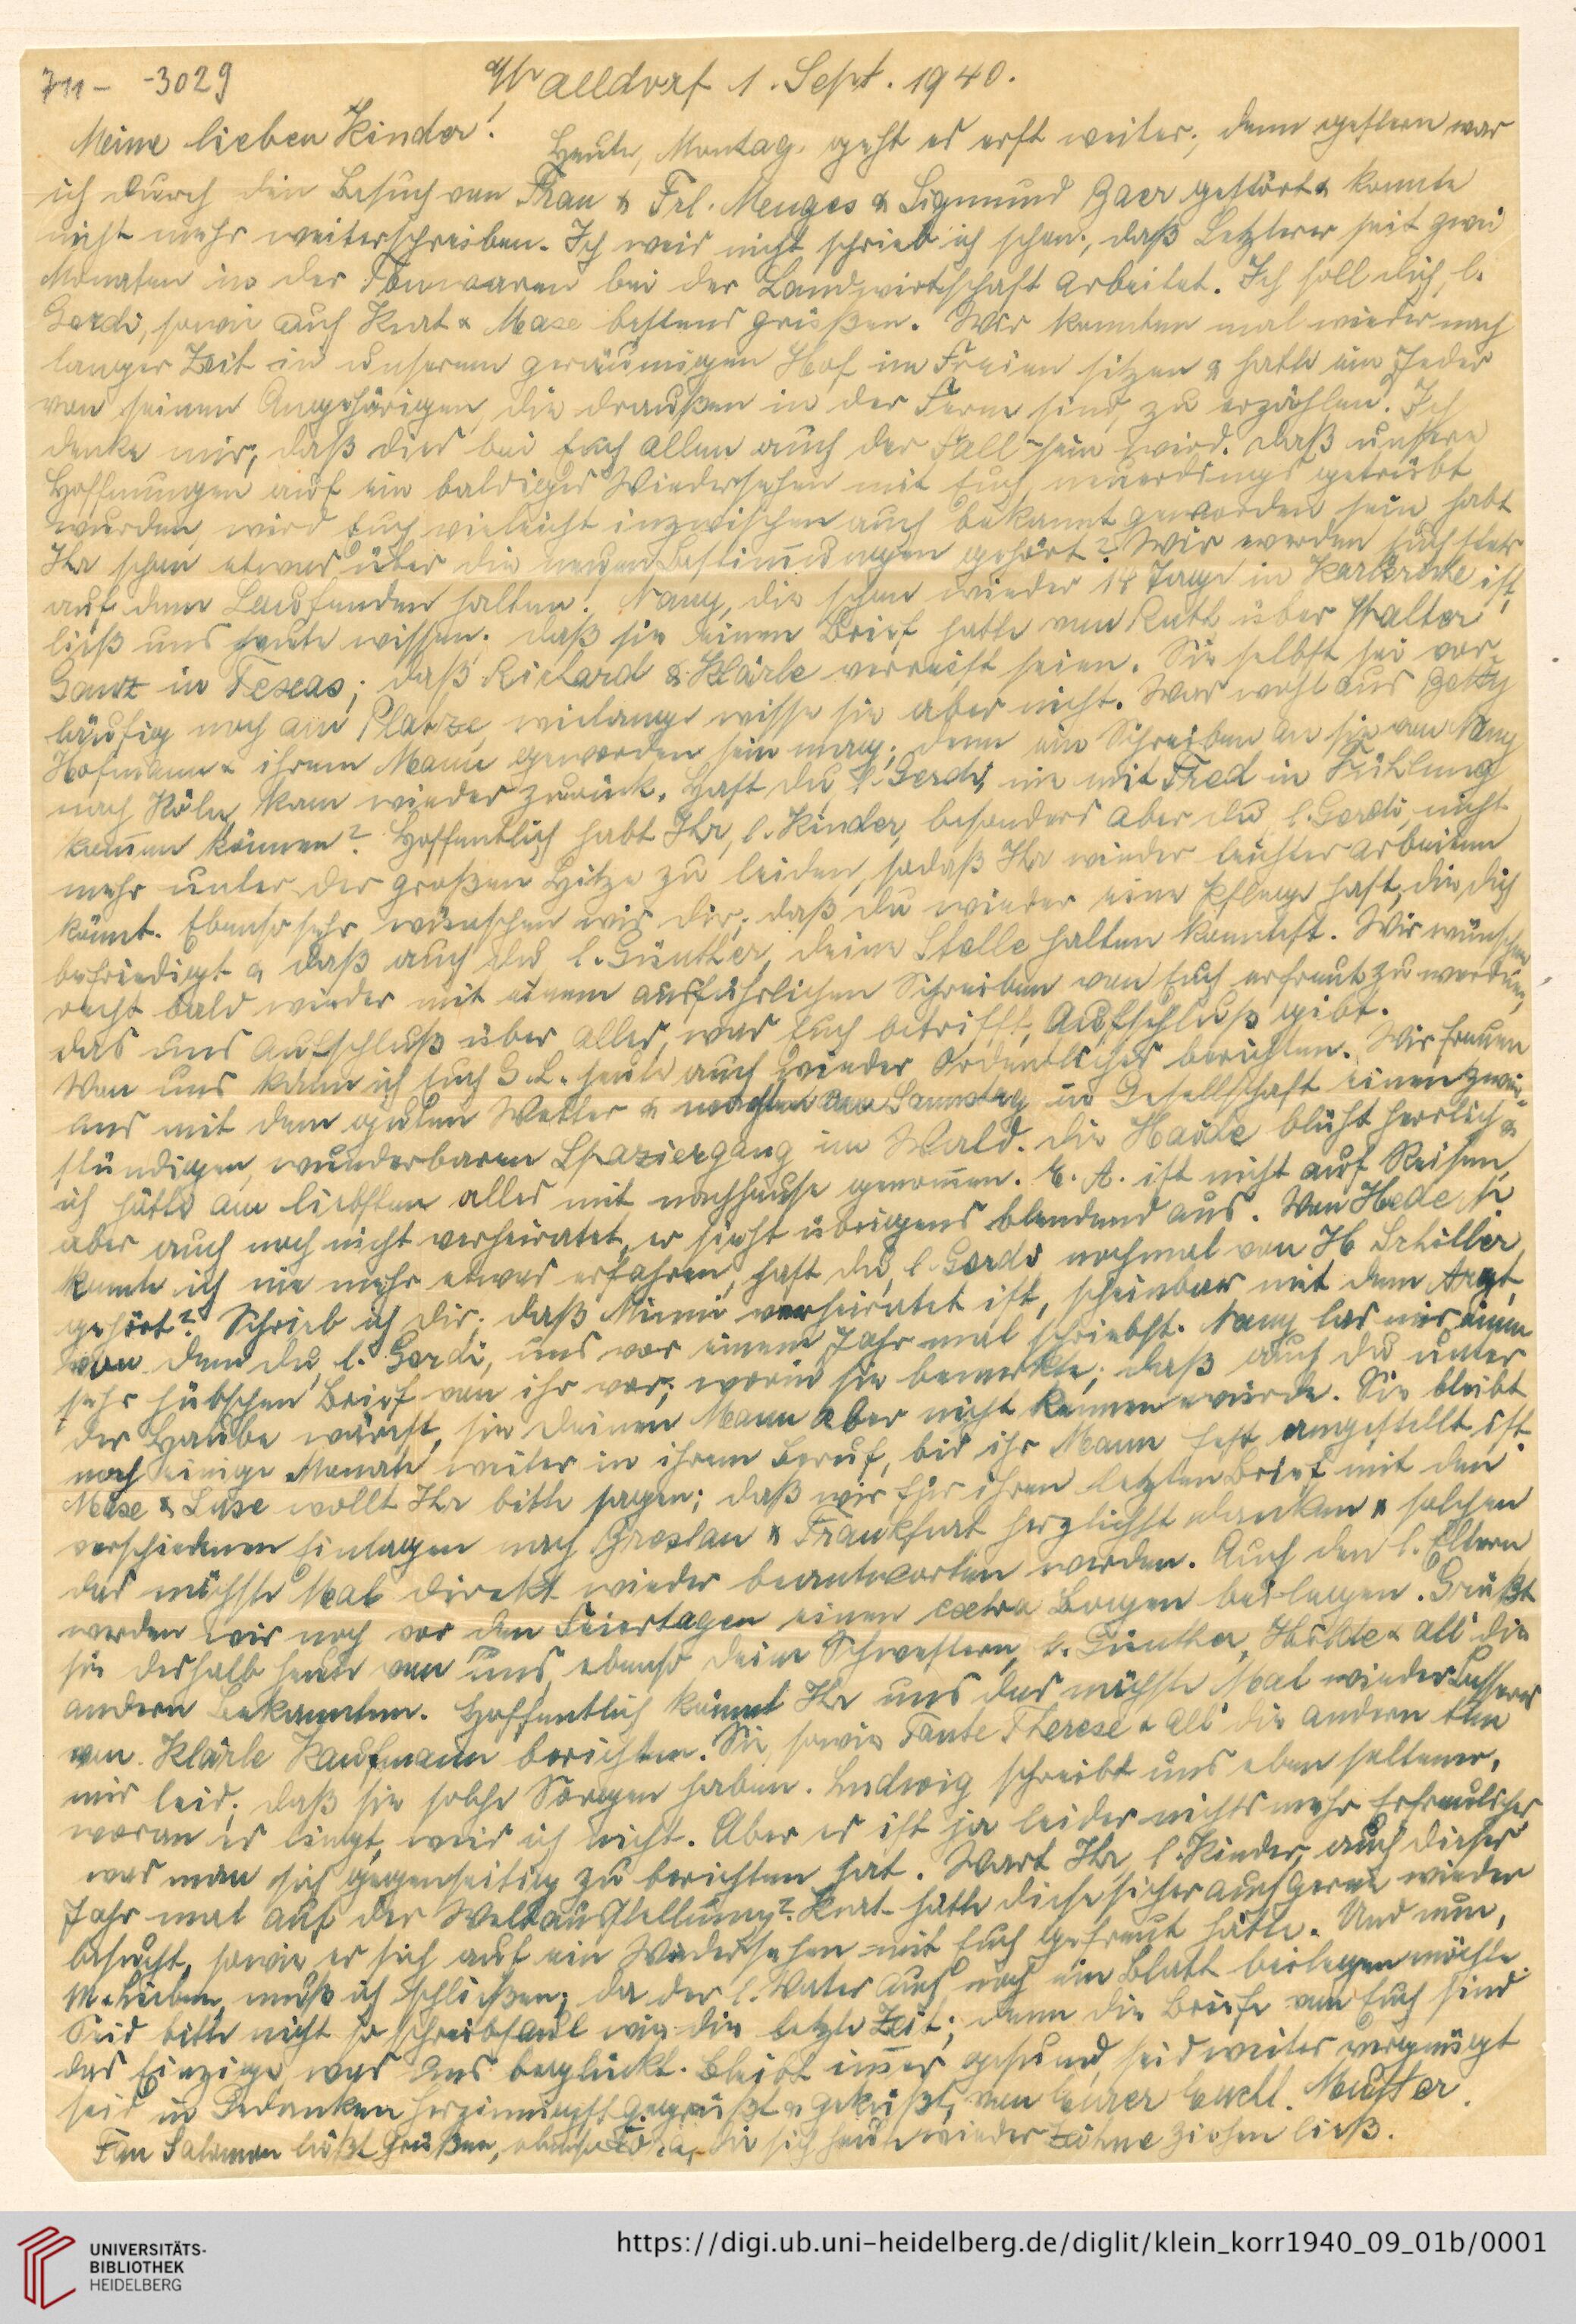 711- -3029
Walldorf 1. Sept. 1940.
Meine lieben Kinder!
Heute, Montag, geht es erst weiter, denn gestern war
ich durch den Besuch von Frau & Frl. Menges & Sigmund Baer gestört & konnte
nicht mehr weiterschreiben. Ich weis nicht schrieb ich schon, daß Letzterer seit zwei
Monaten in der Tonwaren bei der Landwirtschaft arbeitet. Ich soll dich, l.
Gerdi, sowie auch Kurt & Mase bestens grüßen. Wir konnten mal wieder nach
langer Zeit in unserem geräumigen Hof im Freien sitzen & hatte ein Jeder
von seinen Angehörigen, die draußen in der Ferne sind, zu erzählen. Ich
denke mir, daß dies bei Euch allen auch der Fall sein wird. Daß unsere
Hoffnungen auf ein baldiges Wiedersehen mit Euch, neuerdings getrübt
wurden, wird Euch vieleicht inzwischen auch bekannt geworden sein habt
Ihr schon etwas über die neuen Bestimmungen gehört? Wir werden Euch stets
auf dem Laufenden halten! Nany, die schon wieder 14 Tage in Karlsruhe ist,
ließ uns heute wissen, daß sie einen Brief hatte von Ruth über Walter
Ganz in Texas; daß Richard & Klärle verreist seien. Sie selbst sei vor-
läufig noch am Platze, wielange wisse sie aber nicht. Was wohl aus Betty
Hofmann & ihrem Mann geworden sein mag, denn ein Schreiben an sie von Nany
nach Köln kam wieder zurück. Hast du, l. Gerdi, nie mit Fred in Fühlung
kommen können? Hoffentlich habt Ihr, l. Kinder, besonders aber du, l. Gerdi, nicht
mehr unter der großen Hitze zu leiden, sodaß Ihr wieder leichter arbeiten
könnt. Ebenso sehr wünschen wir dir, daß du wieder eine Pflege hast, die dich
befriedigt & daß auch du l. Günther, deine Stelle halten konntest. Wir wünschen
recht bald wieder mit einem ausführlichen Schreiben von Euch erfreut zu werden,
das uns Aufschluß über alles, was Euch betrifft, Aufschluß gibt.
Von uns kann ich Euch G. L. heute auch wieder Ordentliches berichten. Wir freuen
uns mit dem guten Wetter & machten am Samstag in Gesellschaft einen zwei-
stündigen, wunderbaren Spaziergang im Wald. Die Haide blüht herrlich &
ich hätte am liebsten alles mit nachhause genommen. E. A. ist nicht auf Reisen,
aber auch noch nicht verheiratet, er sieht übrigens blendend aus. Von Hede N.
konnte ich nie mehr etwas erfahren, hast du, l. Gerdi nochmal von H. Schiller
gehört? Schrieb ich dir, daß Mimi verheiratet ist, scheinbar mit dem Arzt,
von dem du, l. Gerdi, uns vor einem Jahr mal schriebst. Nany las mir einen
sehr hübschen Brief von ihr vor, worin sie bemerkte, daß auch du unter
der Haube wärest, sie deinen Mann aber nicht kennen würde. Sie bleibt
noch einige Monate weiter in ihrem Beruf, bis ihr Mann fest angestellt ist.
Mase & Luse wollt Ihr bitte sagen, daß wir für ihren letzten Brief mit den
verschiedenen Einlagen nach Breslau & Frankfurt herzlichst danken & solchen
das nächste Mal direkt wieder beantworten werden. Auch den l. Eltern
werden wir noch vor den Feiertagen einen extra Bogen beilegen. Grüßt
sie deshalb heute von uns, ebenso deine Schwestern, l. Günther, Hilde & all' die
andern Bekannten. Hoffentlich könnt Ihr uns das nächste Mal wieder Besseres
von Klärle Kaufmann berichten. Sie, sowie Tante Therese & all' die andern tun
mir leid, daß sie solche Sorgen haben. Ludwig schreibt uns eben seltener,
woran es liegt, weis ich nicht. Aber es ist ja leider nichts mehr Erfreuliches
was man sich gegenseitig zu berichten hat. Wart Ihr, l. Kinder, auch dieses
Jahr mal auf der Weltausstellung? Kurt hätte diese sicher auch gerne wieder
besucht, sowie er sich auf ein Wiedersehen mit Euch gefreut hätte. Und nun,
M. Lieben, muß ich schließen, da der l. Vater auch noch ein Blatt beilegen möchte.
Seid bitte nicht so schreibfaul wie die letzte Zeit, denn die Briefe von Euch sind
das Einzige was uns beglückt. Bleibt immer gesund, seid weiter vergnügt
seid in Gedanken herzinnigst gegrüßt & geküßt, von Eurer Euchl. Mutter.
Frau Salomon läßt Grüßen, ebenso die sich heute wieder Zähne ziehen ließ.
UNIVERSITÄTS-
BIBLIOTHEK
HEIDELBERG
https://digi.ub.uni-heidelberg.de/diglit/klein_korr1940_09_01b/0001